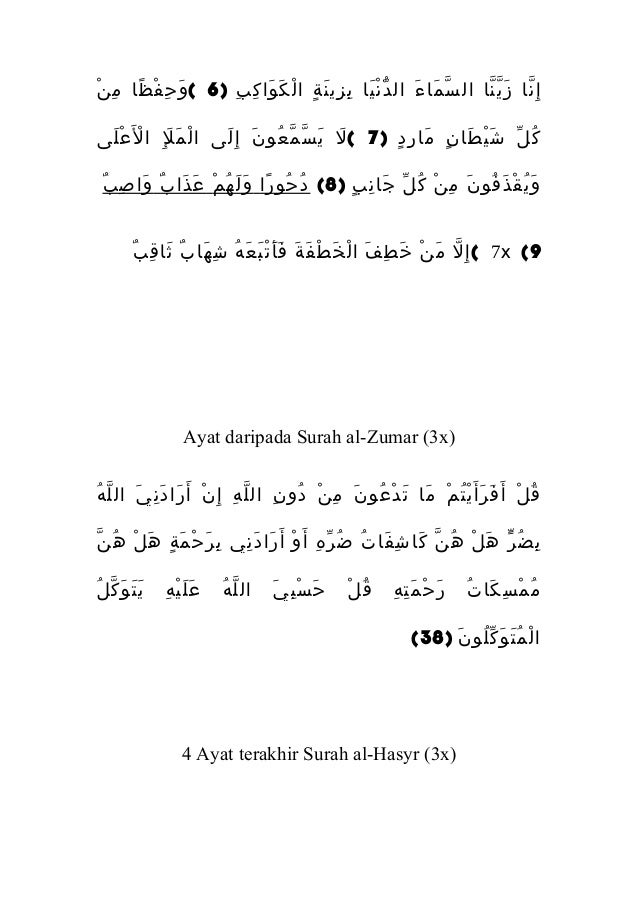 إِنَّا زَيَّنَّا السَّمَاءَ الدُّنْيَا بِزِينَةٍ الْكَوَاكِبِ (6) وَحِفْظًا مِنْ
كُلِّ شَيْطَانٍ مَارِدٍ (7) لَا يَسَّمَّعُونَ إِلَى الْمَلَإِ الْأَعْلَى
وَيُقْذَفُونَ مِنْ كُلِّ جَانِبٍ (8) دُحُورًا وَلَهُمْ عَذَابٌ وَاصِبٌ
(9 7x) إِلَّا مَنْ خَطِفَ الْخَطْفَةَ فَأَتْبَعَهُ شِهَابٌ ثَاقِبٌ
Ayat daripada Surah al-Zumar (3x)
قُلْ أَفَرَأَيْتُمْ مَا تَدْعُونَ مِنْ دُونِ اللَّهِ إِنْ أَرَادَنِيَ اللَّهُ
بِضُرٍّ هَلْ هُنَّ كَاشِفَاتُ ضُرِّهِ أَوْ أَرَادَنِي بِرَحْمَةٍ هَلْ هُنَّ
مُمْسِكَاتُ رَحْمَتِهِ قُلْ حَسْبِيَ اللَّهُ عَلَيْهِ يَتَوَكَّلُ
الْمُتَوَكِّلُونَ (38)
4 Ayat terakhir Surah al-Hasyr (3x)